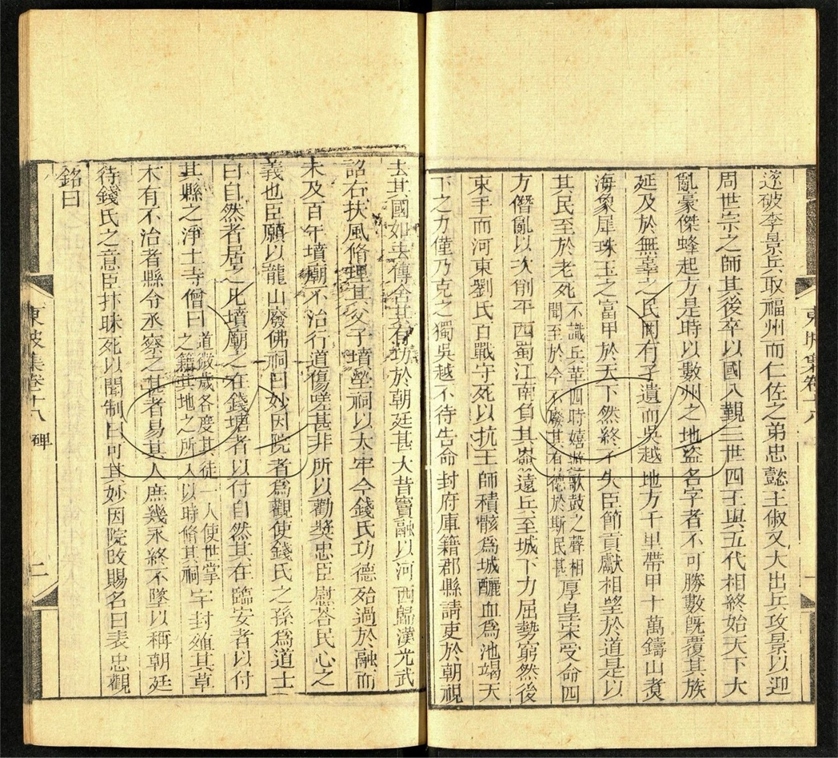 遂破李景兵取福州而仁佐之弟忠懿王俶又大出兵攻景以迎
周世宗之師其後卒以國入覲三世四王與五代相終始天下大
亂豪傑蜂起方是時以數州之地盜名字者不可勝數既覆其族
延及於無辜之民罔有孑遺而吳越地方千里帶甲十萬鑄山煑
海象犀珠玉之富甲於天下然終不失臣節貢獻相望於道是以
其民至於老死不識兵革四時嬉遊歌鼓之聲相聞至於今不廢其有德於斯民甚厚皇宋受命四
方僭亂以次削平西蜀江南負其嶮遠兵至城下力屈勢窮然後
束手而河東劉氏百戰守死以抗王師積骸為城釃血為池竭天
下之力僅乃克之獨吳越不待告命封府庫籍郡縣請吏於朝視
去其國如去傳舍其有功於朝廷甚大昔竇融以河西歸漢光武
詔右扶風脩理其父子墳塋祠以太牢今錢氏功德殆過於融而
未及百年墳廟不治行道傷嗟甚非所以勸奬忠臣慰荅民心之
義也臣願以龍山廢佛祠曰妙因院者為觀使錢氏之孫為道士
曰自然者居之凡墳廟之在錢塘者以付自然其在臨安者以付
其縣之淨土寺僧曰道微歲各度其徒一人使世掌之籍其地之所入以時脩其祠宇封殖其草
木有不治者縣令丞察之甚者易其人庶幾永終不墜以稱朝廷
待錢氏之意臣抃昧死以聞制曰可其妙因院改賜名曰表忠觀
銘曰
東坡集卷十八 碑 二